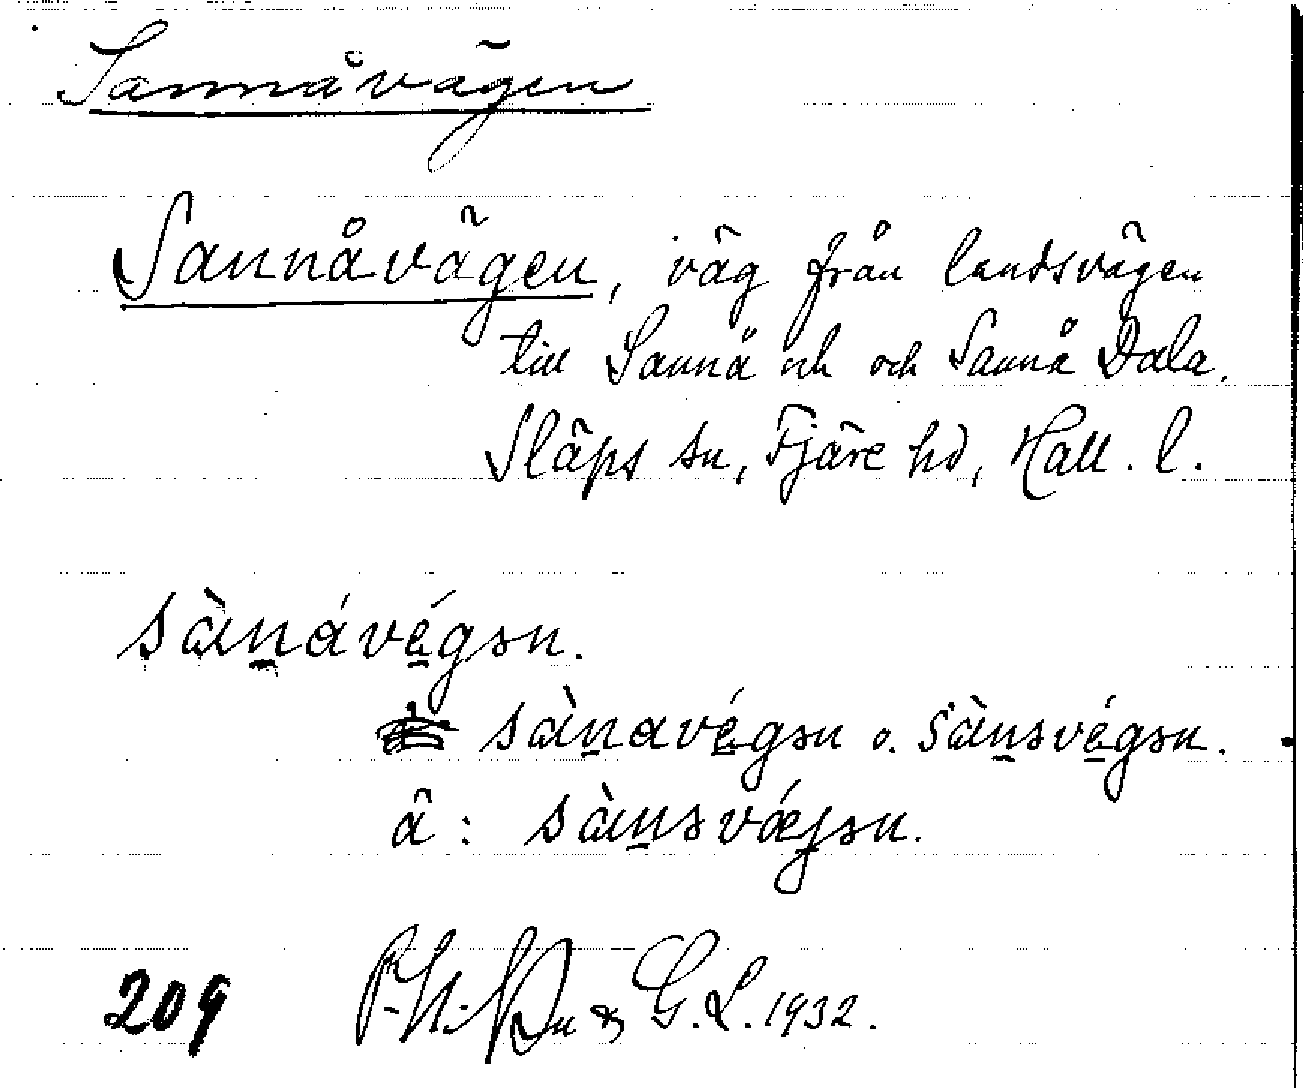 Sannåvägen
Sannåvägen, väg från landsvägen
till Sannå och och Sannå Dala.
Släps sn, Fjäre hd, Hall. l.
sàn̠ávé̠gən.
sàn̠avé̠gən o. sàn̠əvé̠gən.
ä: sàn̠əvǽjən.
209 & G. L. 1932.